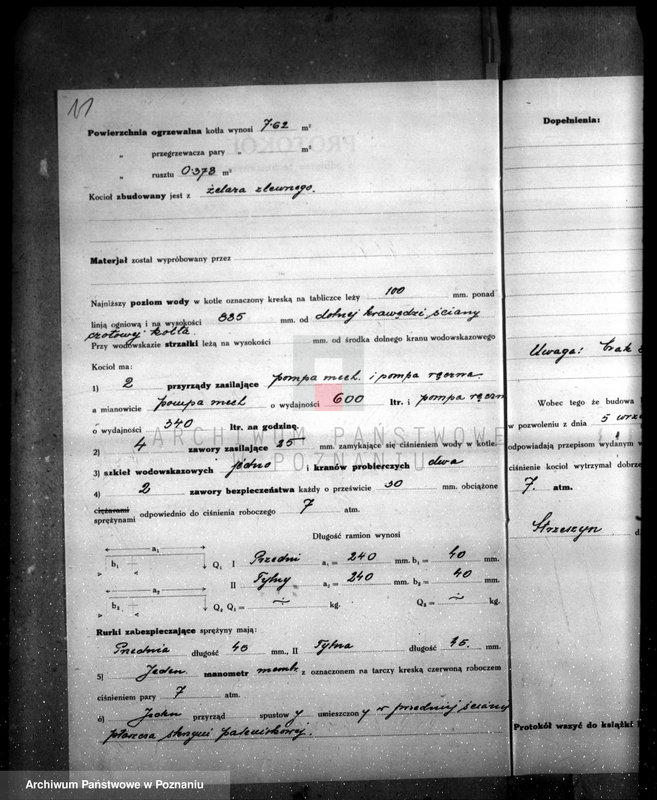 11
Powierzchnia ogrzewalna kotła wynosi 7·62 m²
„ przegrzewacza pary „ m²
„ rusztu 0·373 m²
Kocioł zbudowany jest z żelaza zlewnego.
Materjał został wypróbowany przez
Najniższy poziom wody w kotle oznaczony kreską na tabliczce leży 100 mm. ponad
linją ogniową i na wysokości 835 mm. od dolnej krawędzi ściany
czołowej kotła.
Przy wodowskazie strzałki leżą na wysokości mm. od środka dolnego kranu wodowskazowego
Kocioł ma:
1) 2 przyrządy zasilające pompa mech. i pompa ręczna.
a mianowicie pompa mech o wydajności 600 ltr. i pompa ręczn
o wydajności 340 ltr. na godzinę
2) 4 zawory zasilające 25 mm. zamykające się ciśnieniem wody w kotle.
3) szkieł wodowskazowych jedno i kranów probierczych dwa
4) 2 zawory bezpieczeństwa każdy o prześwicie 30 mm. obciążone
ciężarami
sprężynami odpowiednio do ciśnienia roboczego 7 atm.
Długość ramion wynosi
a₁ b₁ Q₁ I Przedni a₁ = 240 mm. b₁ = 40 mm.
II Tylny a₂ = 240 mm. b₂ = 40 mm.
a₂ b₂ Q₂ Q₁ = kg. Q₂ = kg.
Rurki zabezpieczające sprężyny mają:
Przednia długość 45 mm., II Tylna długość 45. mm.
5) Jeden manometr membr. z oznaczonem na tarczy kreską czerwoną roboczem
ciśnieniem pary 7 atm.
6) Jeden przyrząd spustowy umieszczony w przedniej ściany
płaszcza skrzyni paleniskowej.
Dopełnienia:
Uwaga: brak
Wobec tego że budowa
w pozwoleniu z dnia 5 wrze
odpowiadają przepisom wydanym w
ciśnienie kocioł wytrzymał dobrze
7. atm.
Strzeszyn d
Protokół wszyć do książki
ARCHIWUM PAŃSTWOWE
W POZNANIU
Archiwum Państwowe w Poznaniu